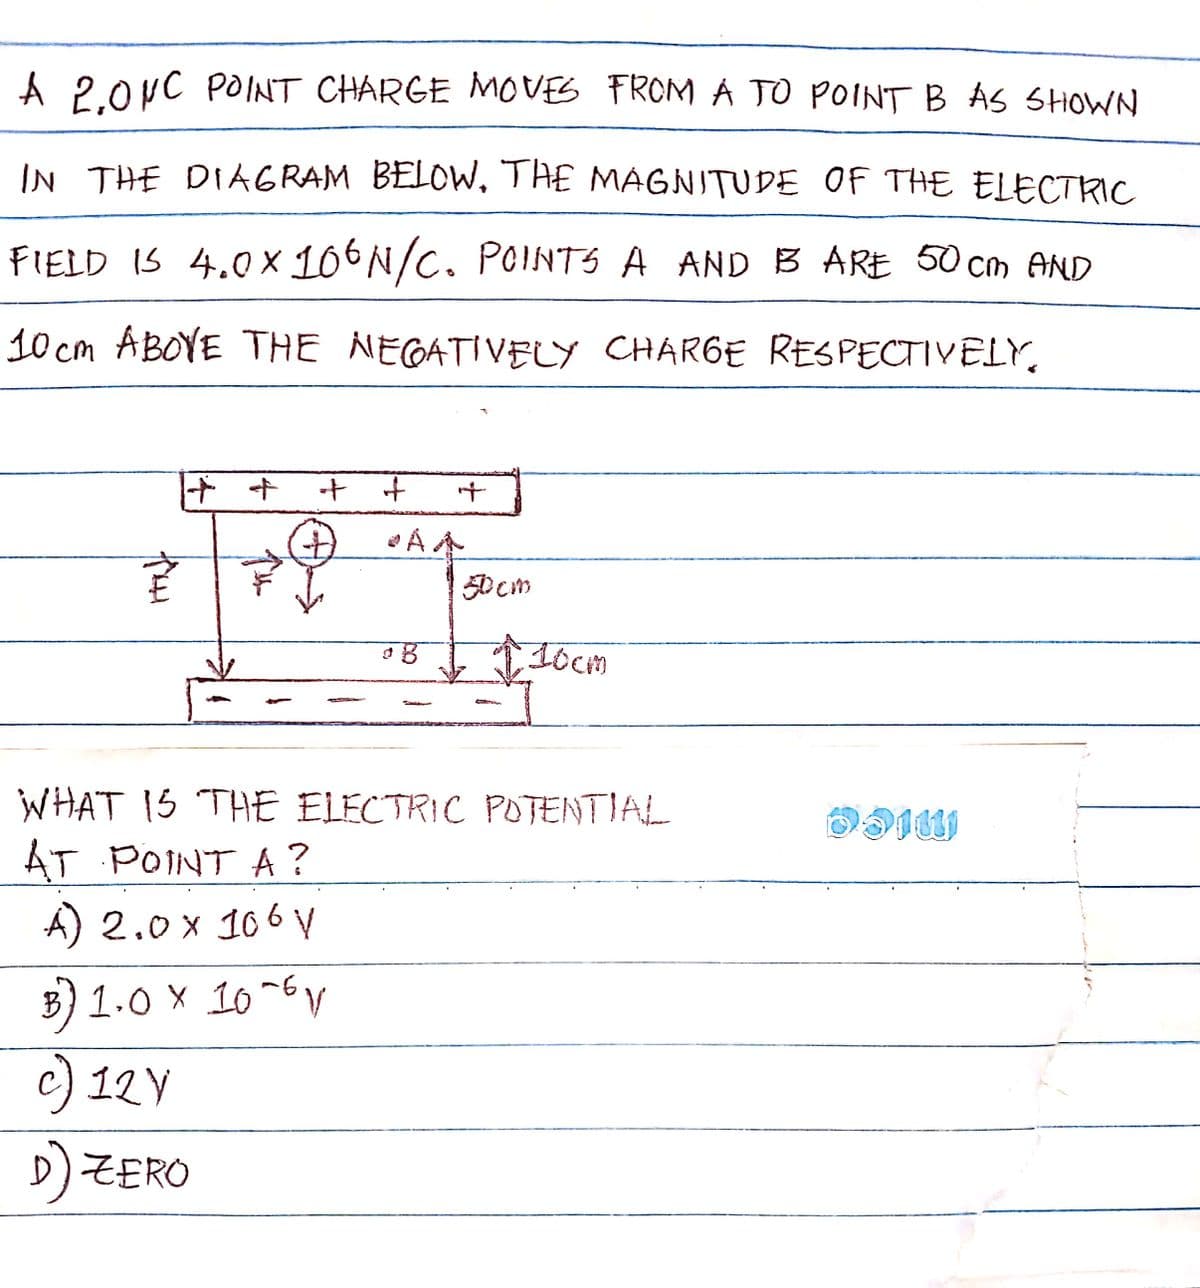 A 2.0μC POINT CHARGE MOVES FROM A TO POINT B AS SHOWN
IN THE DIAGRAM BELOW. THE MAGNITUDE OF THE ELECTRIC
FIELD IS 4.0 X 10⁶ N/C. POINTS A AND B ARE 50 cm AND
10 cm ABOVE THE NEGATIVELY CHARGE RESPECTIVELY.
+ + + + +
+ • A
E F 50 cm
• B 10 cm
- - - - -
WHAT IS THE ELECTRIC POTENTIAL
AT POINT A?
A) 2.0 x 10⁶ V
B) 1.0 x 10⁻⁶ V
C) 12 V
D) ZERO